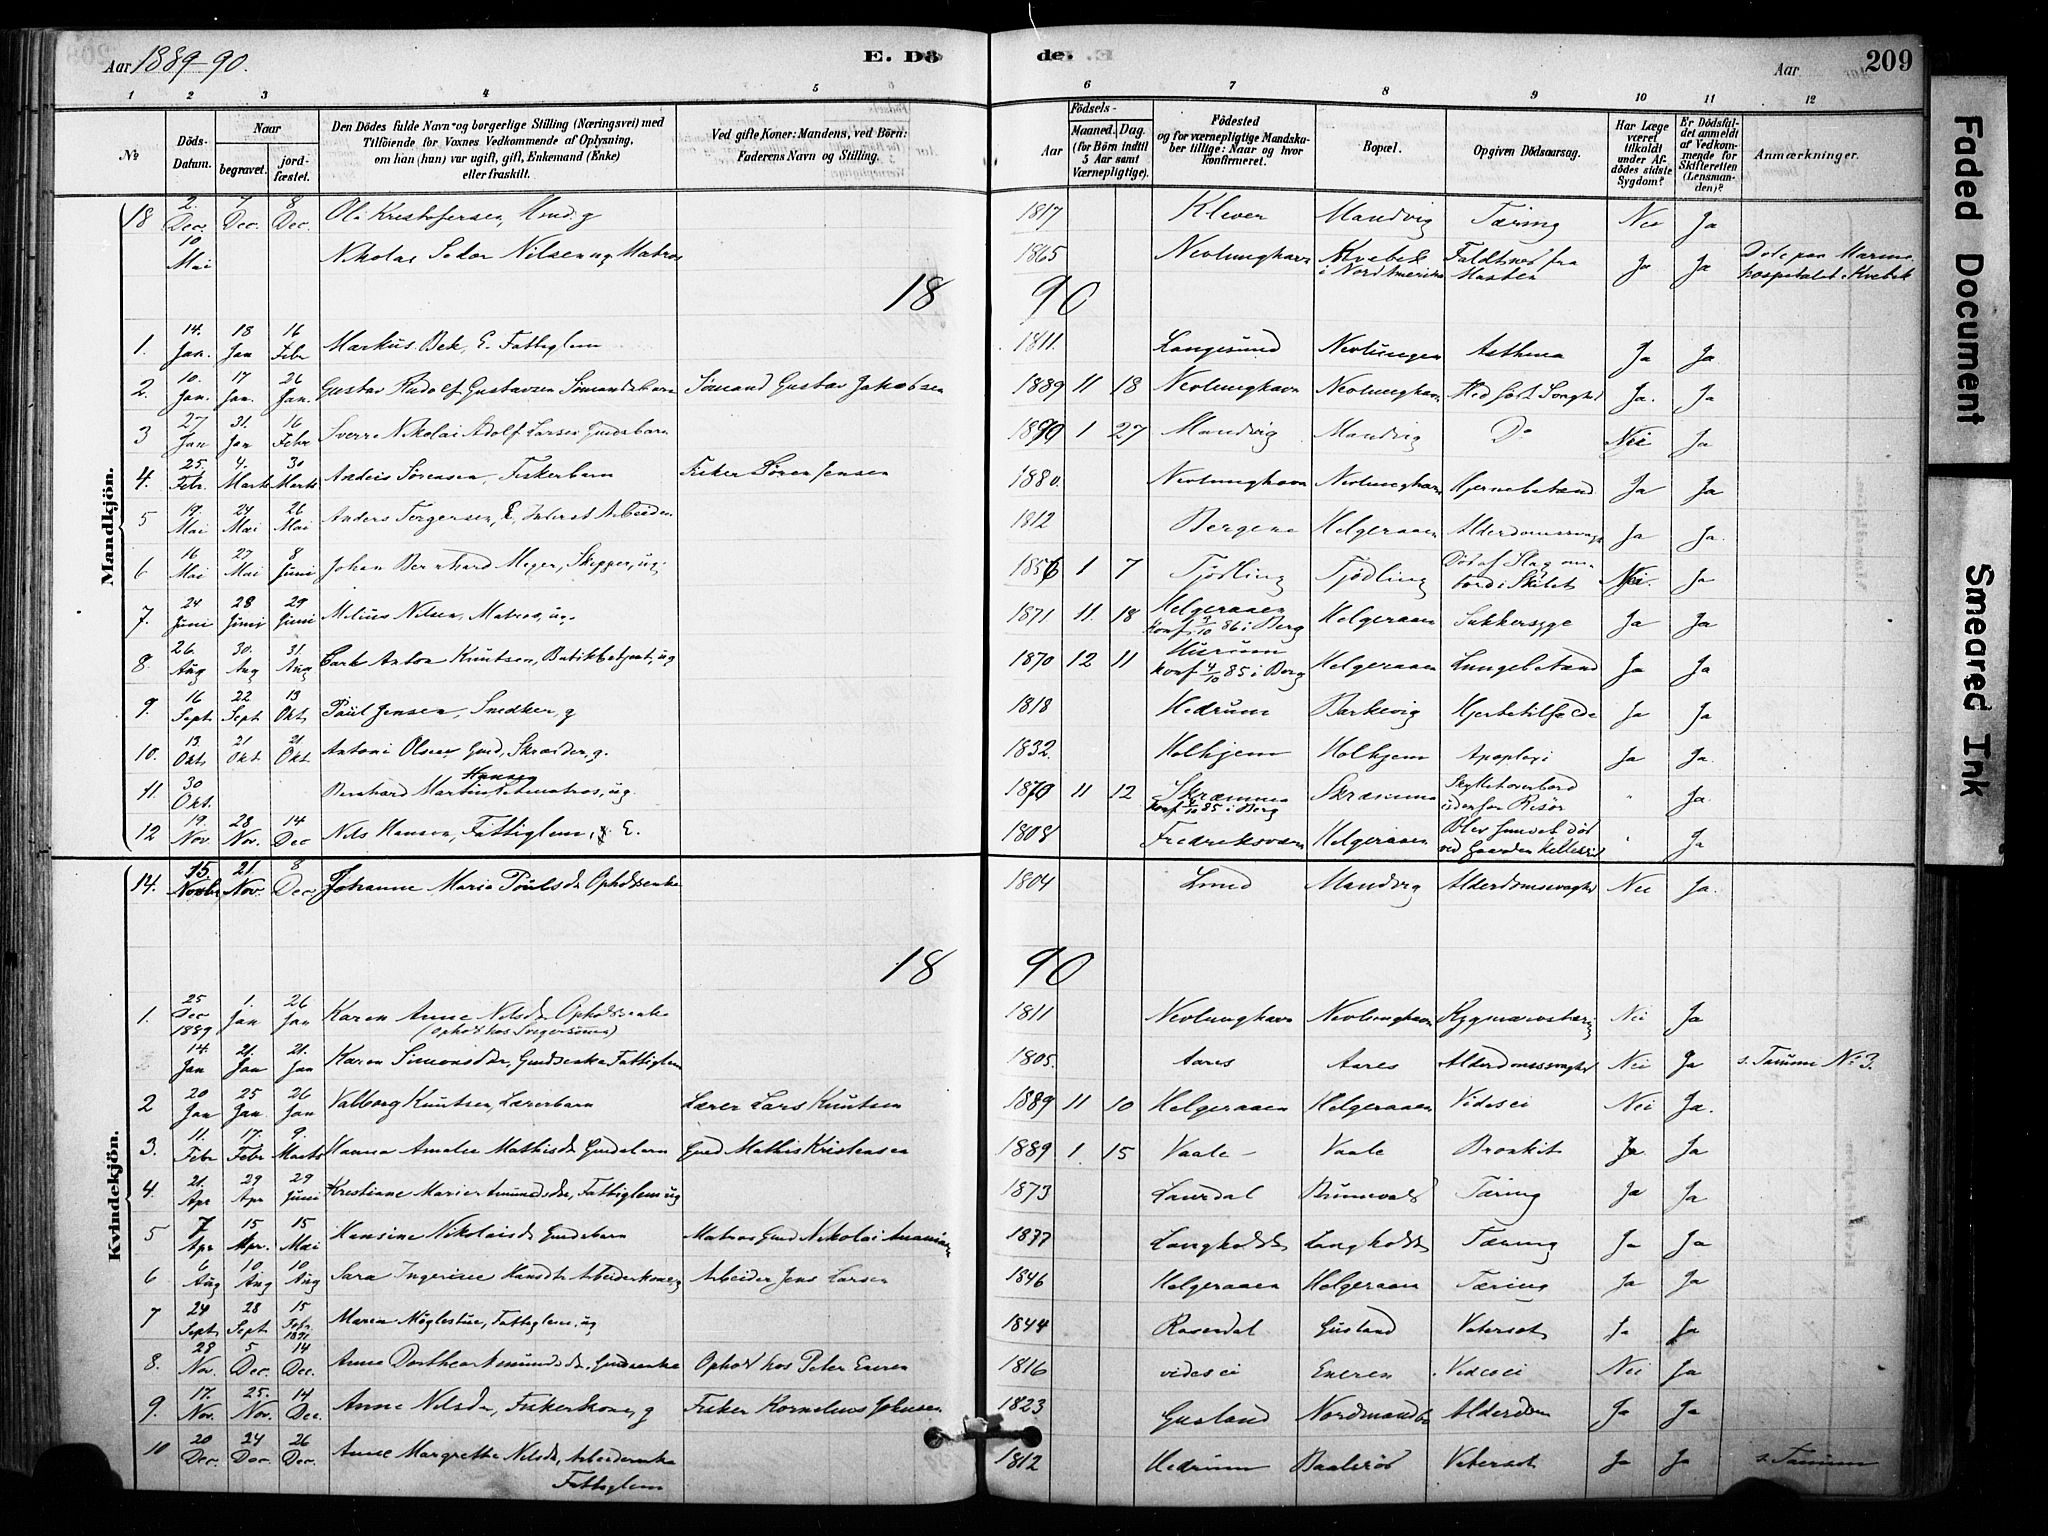 Aar 1889-90. E. Dö de. Aar 209
1 2 3 4 5 6 7 8 9 10 11 12
No Döds-Datum. Naar begravet. jordfæstet. Den Dödes fulde Navn og borgerlige Stilling (Næringsvei) med Tilföiende for Voxnes Vedkommende af Oplysning, om han (hun) var ugift, gift, Enkemand (Enke) eller fraskilt. Ved gifte Koner: Mandens, ved Börn: Faderens Navn og Stilling. Födsels- Aar Maaned. Dag. (for Börn indtil 5 Aar samt Værnepligtige). Födested og for værnepligtige Mandskaber tillige: Naar og hvor konfirmeret. Bopæl. Opgiven Dödsaarsag. Har Læge været tilkaldt under Afdödes sidste Sygdom? Er Dödsfaldet anmeldt af Vedkommende for Skifteretten (Lensmanden)? Anmærkninger.
Mandkjön.
18 2. Dec. 7 Dec. 8 Dec. Ole Kristofersen, g 1817 Klever Mandvig Tæring Nei Ja
10 Mai Nikolai Nilsen ug Matros 1865 Nevlunghavn Kvebek i Nordamerika Faldt ned fra Masten Ja Ja Döde paa Marinehospitalet i Kvebek
18 90
1. 14. Jan. 18 Jan 16 Febr Markus Bek, E. Fattiglem 1811. Langesund Nevlungen Asthma Ja Ja
2. 10. Jan. 17 Jan. 26 Jan. Gustav Rudolf Gustavsen Sömandsbarn Sömand Gustav Jakobsen 1889 11 18 Nevlunghavn Nevlunghavn Medfödt Svaghed Ja. Ja
3 27 Jan 31. Jan 16 Febr Sverre Nikolai Adolf Larsen Gmdsbarn 1890 1 27 Mandvig Mandvig Do Nei Ja
4. 25. Febr. 4. Marts 30 Marts Anders Sörensen, Fiskerbarn Fisker Sören Jensen 1880. Nevlunghavn Nevlunghavn Hjernebetænd Ja Ja
5 19. Mai 24 Mai 26 Mai Anders Torgersen, E, Arbeider 1812 Bergene Helgeraaen Alderdomssvagh Ja Ja.
6 16 Mai 27 Mai 8 Juni Johan Bernhard Meyer, Skipper, ug. 1856 1 7 Tjödling Tjödling Död af Slag ombord i Skibet Nei. Ja
7. 24 Juni 28 Juni 29 Juni Melius Nilsen, Matros, ug. 1871 11. 18 Helgeraaen konf 3/10 86 i Berg Helgeraaen Sukkersyge Ja Ja
8. 26. Aug 30. Aug 31. Aug Carl Anton Knutsen, Butikbetjent, ug 1870 12 11 Hurum konf 4/10 85 i Berg Helgeraaen Lungebetænd Ja Ja
9. 16 Sept 22 Sept 13 Okt Poul Jensen, Snedker, g 1818 Hedrum Barkevig Hjertetilfælde Ja Ja
10. 13. Okt 21 Okt 21. Okt. Antoni Olsen, Gmd, Skrædder, g. 1832. Holhjem Holhjem Apoplexi Ja Ja.
11. 30 Okt. Bernhard Martin Hansen matros, ug. 1870 11 12 Skræmma konf 4/10 85 i Berg Skræmma Skyllet overbord udenfor Risör " Ja.
12 19. Nov 28 Nov. 14 Dec Nils Hansen, Fattiglem, E. 1808 Fredriksværn Helgeraaen Blev fundet död ved Gaarden " Ja
Kvindekjön.
14. 15. Novbr 21 Nov. 8 Dec Johanne Maria Poulsdr 1804 Lund Mandvig Alderdomssvaghed Nei Ja.
18 90
1. 25 Dec 1889 1. Jan 26 Jan Karen Anne Nilsdr 1811 Nevlunghavn Nevlunghavn Rygmarvstæring Nei Ja
14. Jan 21. Jan 21. Jan Karen Simonsdr, Gmdsenke Fattiglem 1805. Aares Aares Alderdomssvaghed Nei Ja s. Tanum No 3.
2 20 Jan 25 Jan. 26 Jan Valborg Knutsen, Lærerbarn Lærer Lars Knutsen 1889 11 10 Helgeraaen Helgeraaen Vides ei Nei Ja.
3. 11. Febr 17. Febr 9. Marts Hanna Amalie Mathisdr Gmdsbarn Gmd Mathis Kristensen 1889 1. 15 Vaale Vaale Bronkit Ja Ja
4. 21. Apr 29 Apr 29 Juni Kristiane Marie Amundsdr, Fattiglem ug 1873 Laurdal Brunvald Tæring Ja Ja
5 7 Apr 15 Apr. 15 Mai Hansine Nikolaisdr Gmdsbarn Matros Gmd Nikolai 1877 Langholdt Langholdt Tæring Ja Ja
6 6 Aug 10 Aug 10 Aug Sara Hansdtr Arbeiderkone, g Arbeider Jens Larsen 1846 Helgeraaen Helgeraaen Tæring Ja Ja
7 24 Sept 28 Sept 15 Febr 1891 Maren Möglestue, Fattiglem, ug 1844 Rosendal Gusland Vatersot Ja Ja
8. 28 Nov. 5 Dec. 14 Dec. Anne Dorthea Amundsdr, Gmdsenke Ophold hos Peter Eneren 1816 vides ei Eneren Vides ei Nei Ja
9. 17. Nov. 25. Nov. 14 Dec. Anne Nilsdr, Fiskerkone, g Fisker Kornelius Johnsen 1823 Gusland Alderdom Ja Ja
10 20 Dec. 24 Dec. 26 Dec. Anne Margrethe Nilsdr, Arbeiderenke Fattiglem 1812 Hedrum Vatersot Ja Ja s. Tanum
Faded Document
Smeared Ink